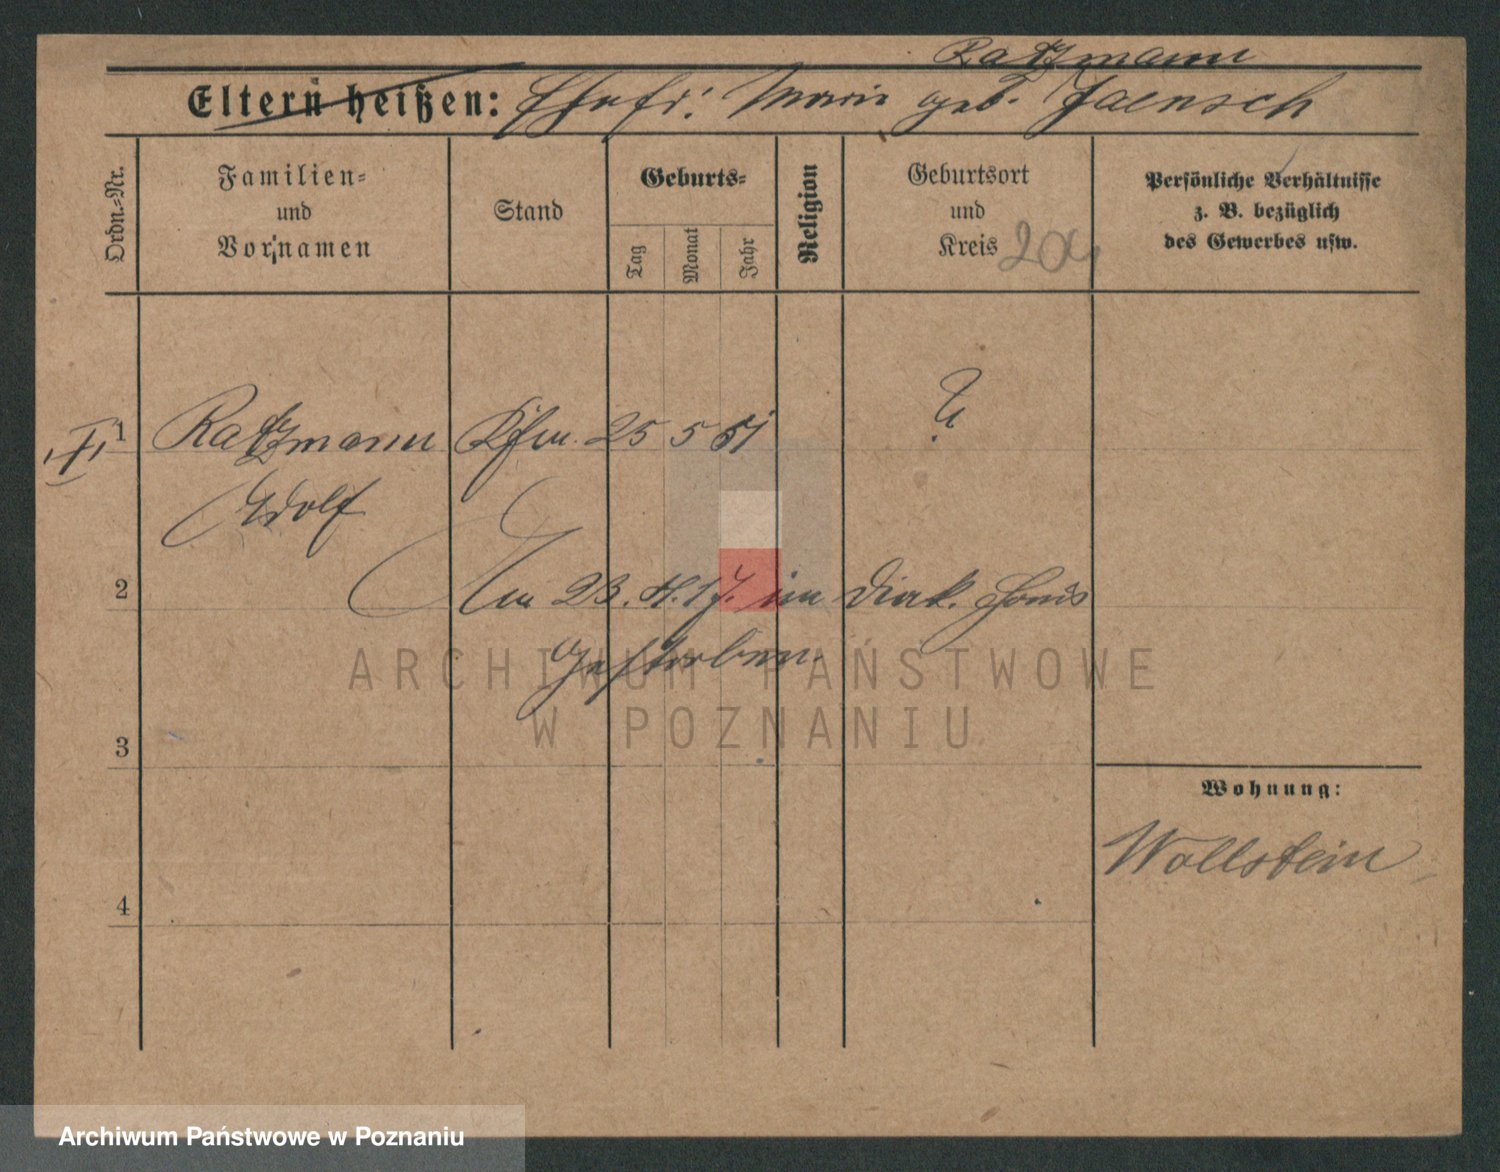 Ratzmann
Eltern heißen: Ehefr: Marie geb. Jaensch
Ordn.-Nr.
Familien-
und
Vornamen
Stand
Geburts-
Tag
Monat
Jahr
Religion
Geburtsort
und
Kreis
Persönliche Verhältnisse
z. B. bezüglich
des Gewerbes usw.
1 Ratzmann Kfm. 25 5 51 ?
Adolf
2 Am 23. 4. 17. im Diak. Haus
gestorben.
ARCHIWUM PAŃSTWOWE
W POZNANIU
3
Wohnung:
Wollstein
4
Archiwum Państwowe w Poznaniu